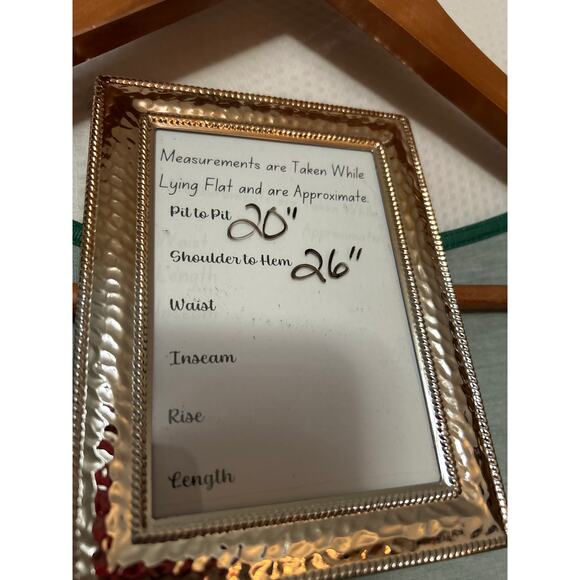 Measurements are Taken While
Lying Flat and are Approximate.
Pit to Pit 20"
Shoulder to Hem 26"
Waist
Inseam
Rise
Length